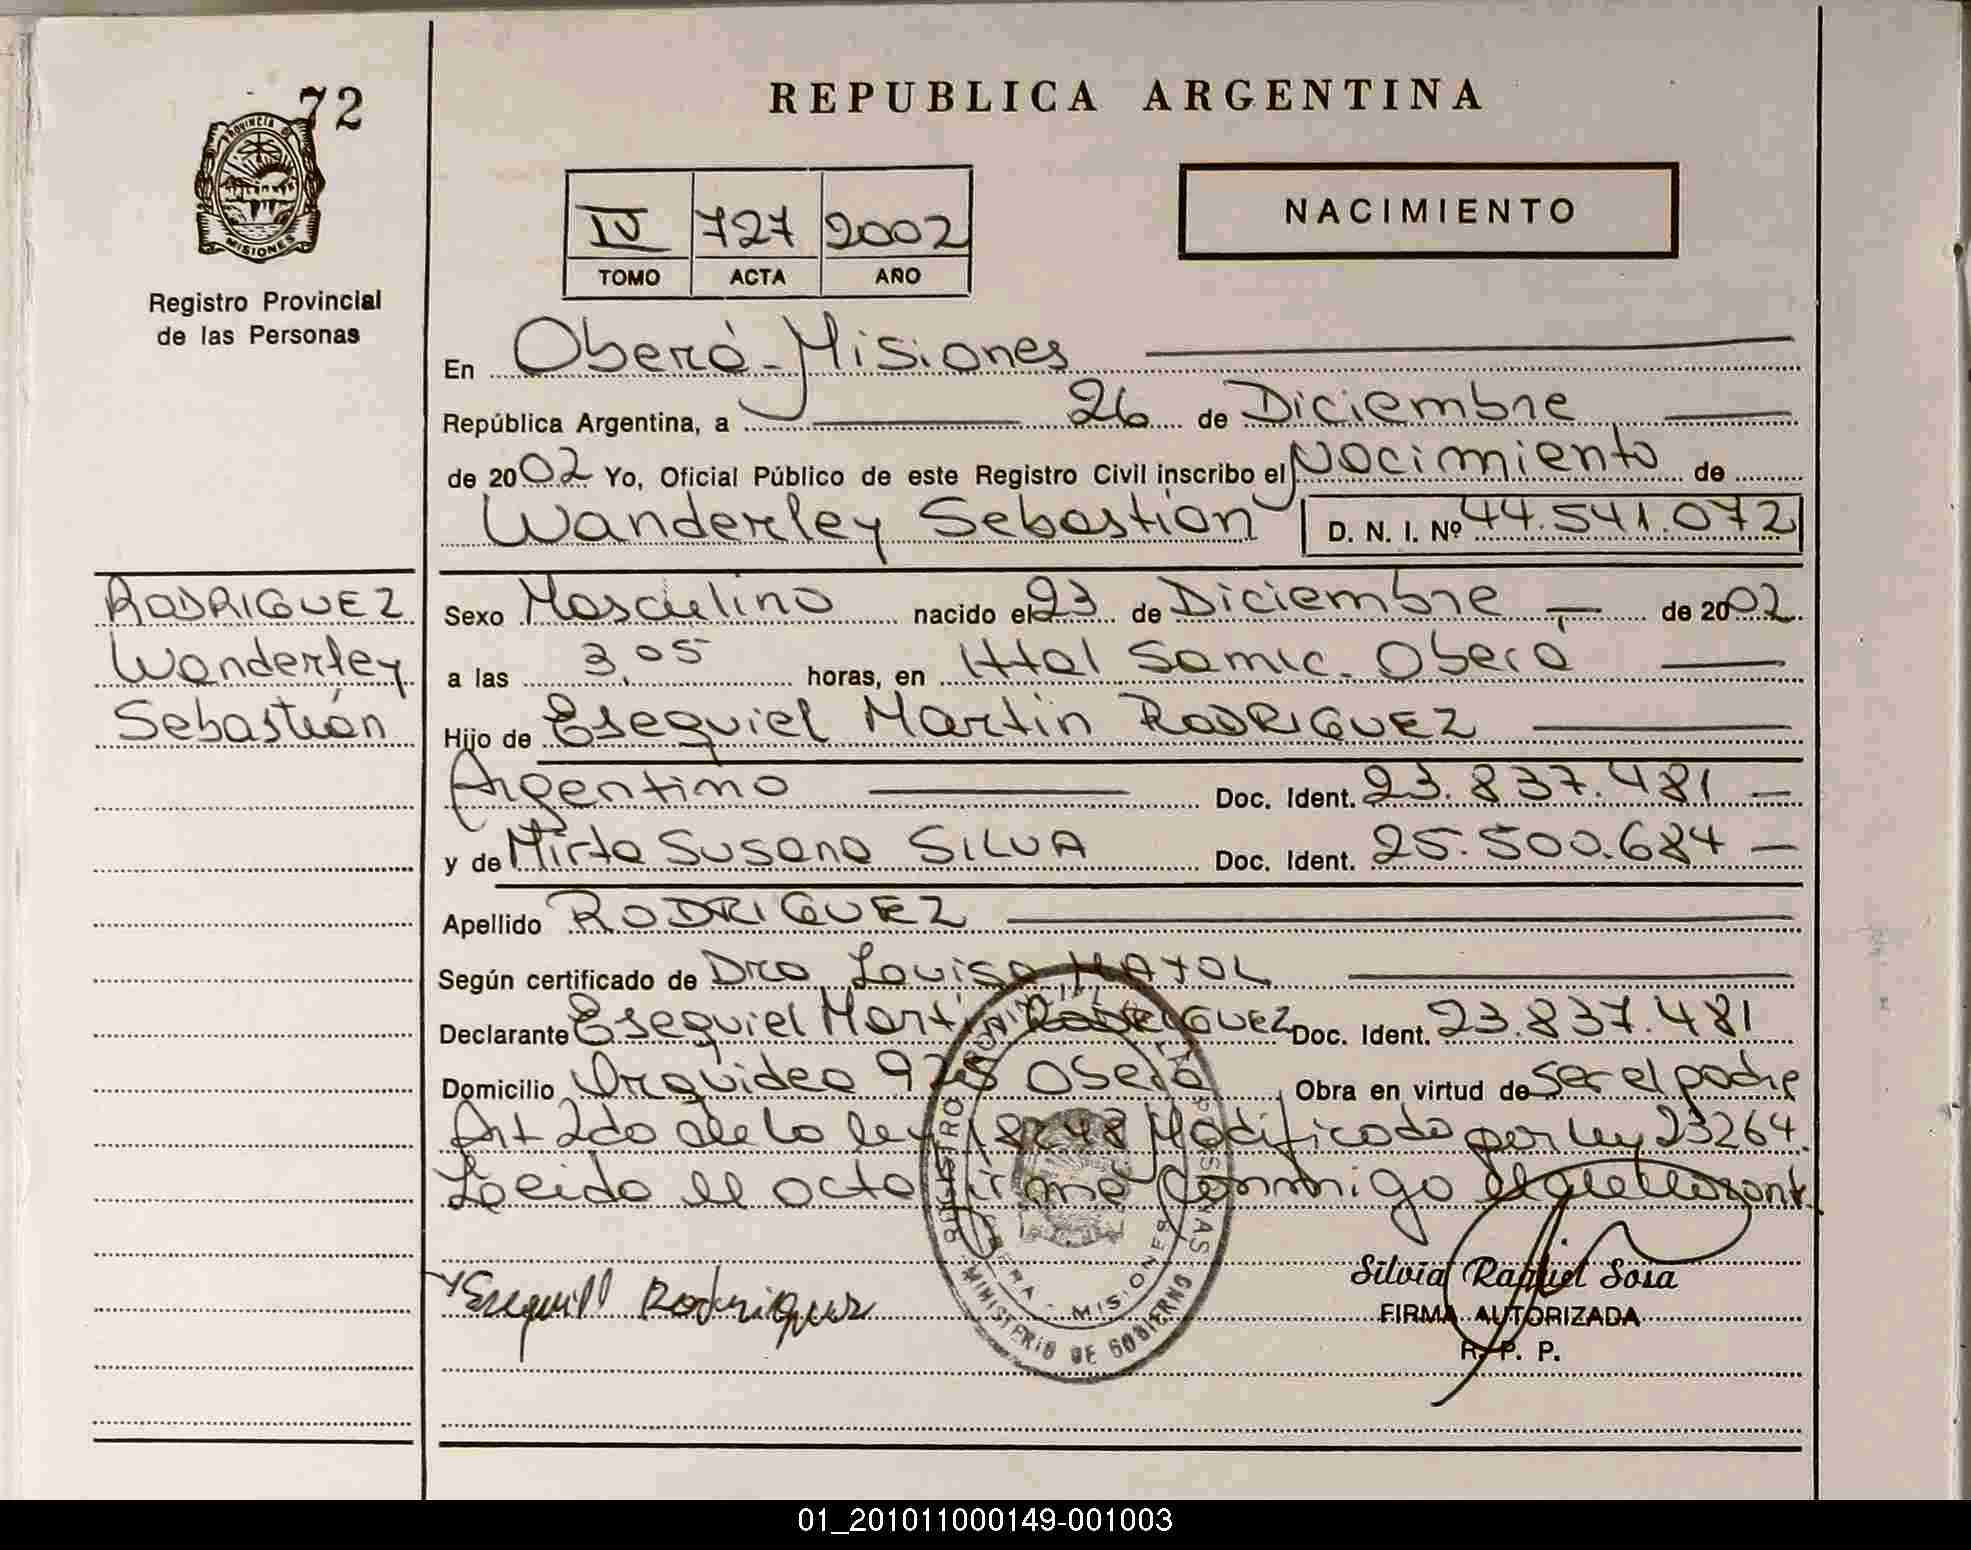 72
PROVINCIA DE
MISIONES
Registro Provincial
de las Personas
REPUBLICA ARGENTINA
IV 727 2002
TOMO ACTA AÑO
NACIMIENTO
En Oberá - Misiones
República Argentina, a 26 de Diciembre
de 2002 Yo, Oficial Público de este Registro Civil inscribo el Nacimiento de
Wanderley Sebastian D. N. I. Nº 44.541.072
RODRIGUEZ
Wanderley
Sebastián
Sexo Masculino nacido el 23 de Diciembre de 2002
a las 3,05 horas, en Htal Samic. Oberá
Hijo de Esequiel Martin RODRIGUEZ
Argentino Doc. Ident. 23.837.481
y de Mirta Susana SILVA Doc. Ident. 25.500.684
Apellido RODRIGUEZ
Según certificado de Dra Louisa MAYOL
Declarante Esequiel Martin RODRIGUEZ Doc. Ident. 23.837.481
Domicilio Orquidea Oberá Obra en virtud de ser el padre
Art 2do de la ley 18248 Modificado por ley 23264.
Leido el acta firma conmigo el
Esequiel Rodriguez
MINISTERIO DE GOBIERNO
MISIONES
Silvia Raquel Sosa
FIRMA AUTORIZADA
R. P. P.
01_201011000149-001003